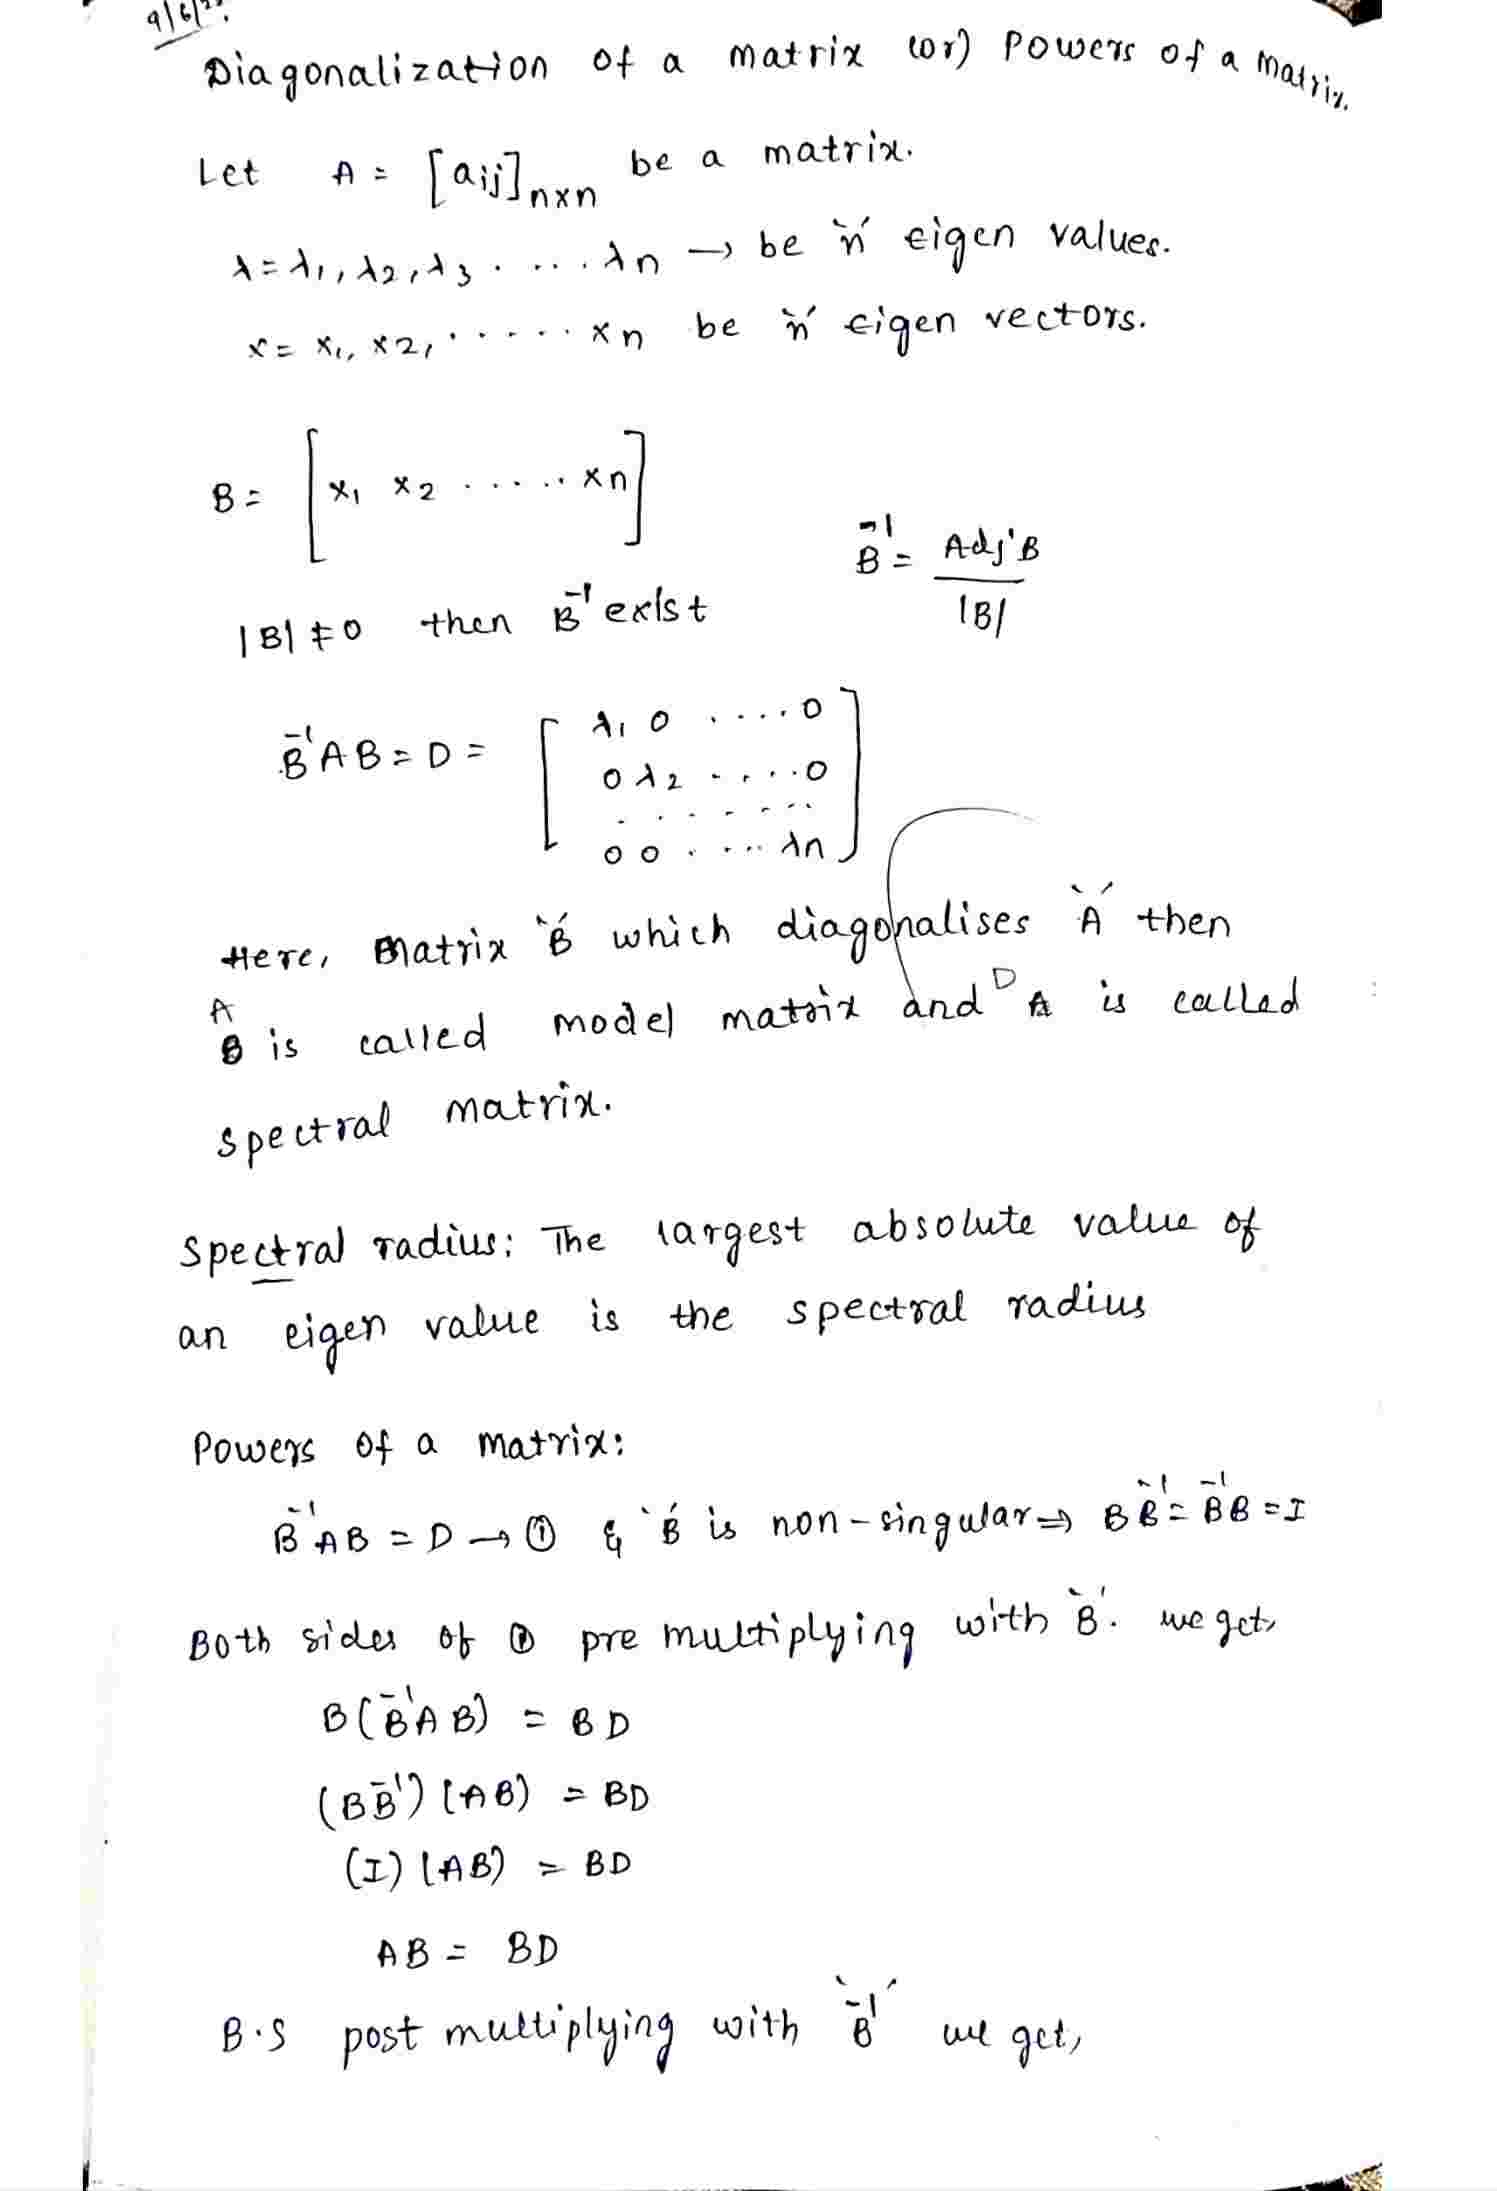 9/6/2
Diagonalization of a matrix (or) Powers of a matrix.
Let A = [aij]nxn be a matrix.
λ = λ1, λ2, λ3 . .... λn → be 'n' eigen values.
x = x1, x2, ...... xn be 'n' eigen vectors.
B = [x1 x2 ..... xn]
B⁻¹ = Adj B / |B|
|B| ≠ 0 then B⁻¹ exist
B⁻¹AB = D = [ λ1 0 ....0
0 λ2 .....0
. . . . . . . .
0 0 . ... λn ]
Here, Matrix 'B' which diagonalises 'A' then
A
B is called model matrix and D A is called
spectral matrix.
Spectral radius: The largest absolute value of
an eigen value is the spectral radius
Powers of a matrix:
B⁻¹AB = D → ① & 'B' is non-singular ⇒ BB⁻¹ = B⁻¹B = I
Both sides of ① pre multiplying with 'B'. we get,
B(B⁻¹AB) = BD
(BB⁻¹)(AB) = BD
(I)(AB) = BD
AB = BD
B.S post multiplying with 'B⁻¹' we get,